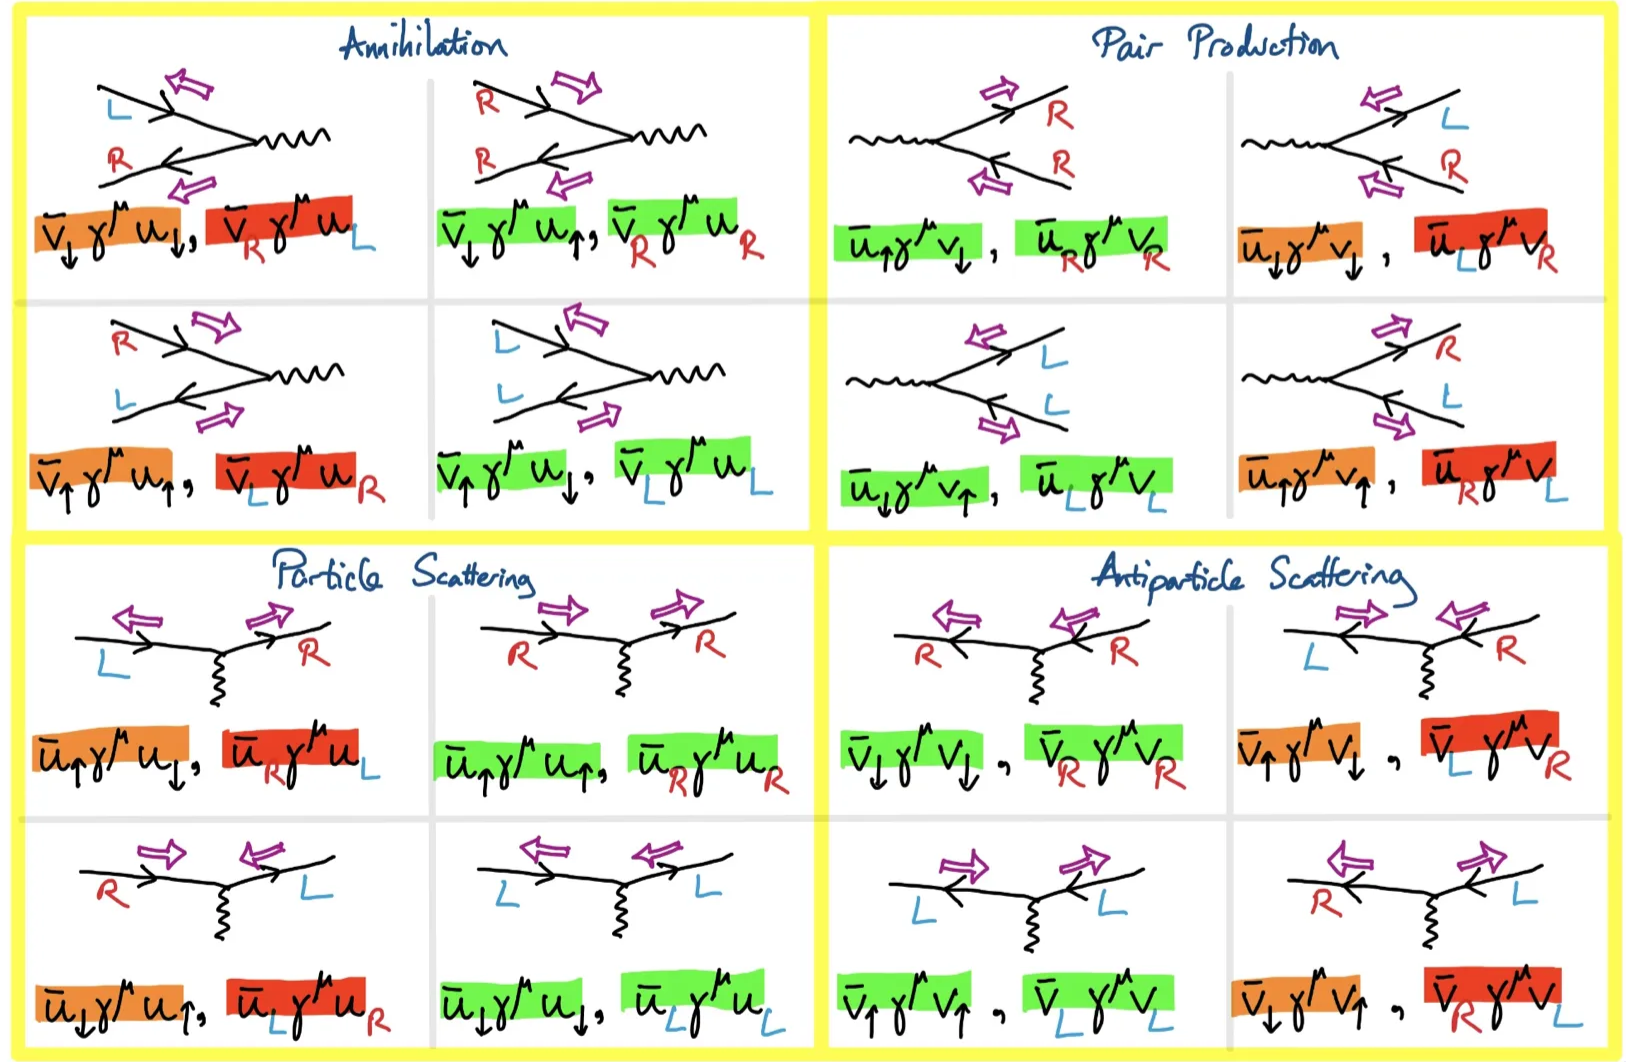 Annihilation
L
R
v̄↓γ^μu↓, v̄_Rγ^μu_L
R
R
v̄↓γ^μu↑, v̄_Rγ^μu_R
R
L
v̄↑γ^μu↑, v̄_Lγ^μu_R
L
L
v̄↑γ^μu↓, v̄_Lγ^μu_L
Pair Production
R
R
ū↑γ^μv↓, ū_Rγ^μv_R
L
R
ū↓γ^μv↓, ū_Lγ^μv_R
L
L
ū↓γ^μv↑, ū_Lγ^μv_L
R
L
ū↑γ^μv↑, ū_Rγ^μv_L
Particle Scattering
L R
ū↑γ^μu↓, ū_Rγ^μu_L
R R
ū↑γ^μu↑, ū_Rγ^μu_R
R L
ū↓γ^μu↑, ū_Lγ^μu_R
L L
ū↓γ^μu↓, ū_Lγ^μu_L
Antiparticle Scattering
R R
v̄↓γ^μv↓, v̄_Rγ^μv_R
L R
v̄↑γ^μv↓, v̄_Lγ^μv_R
L L
v̄↑γ^μv↑, v̄_Lγ^μv_L
R L
v̄↓γ^μv↑, v̄_Rγ^μv_L